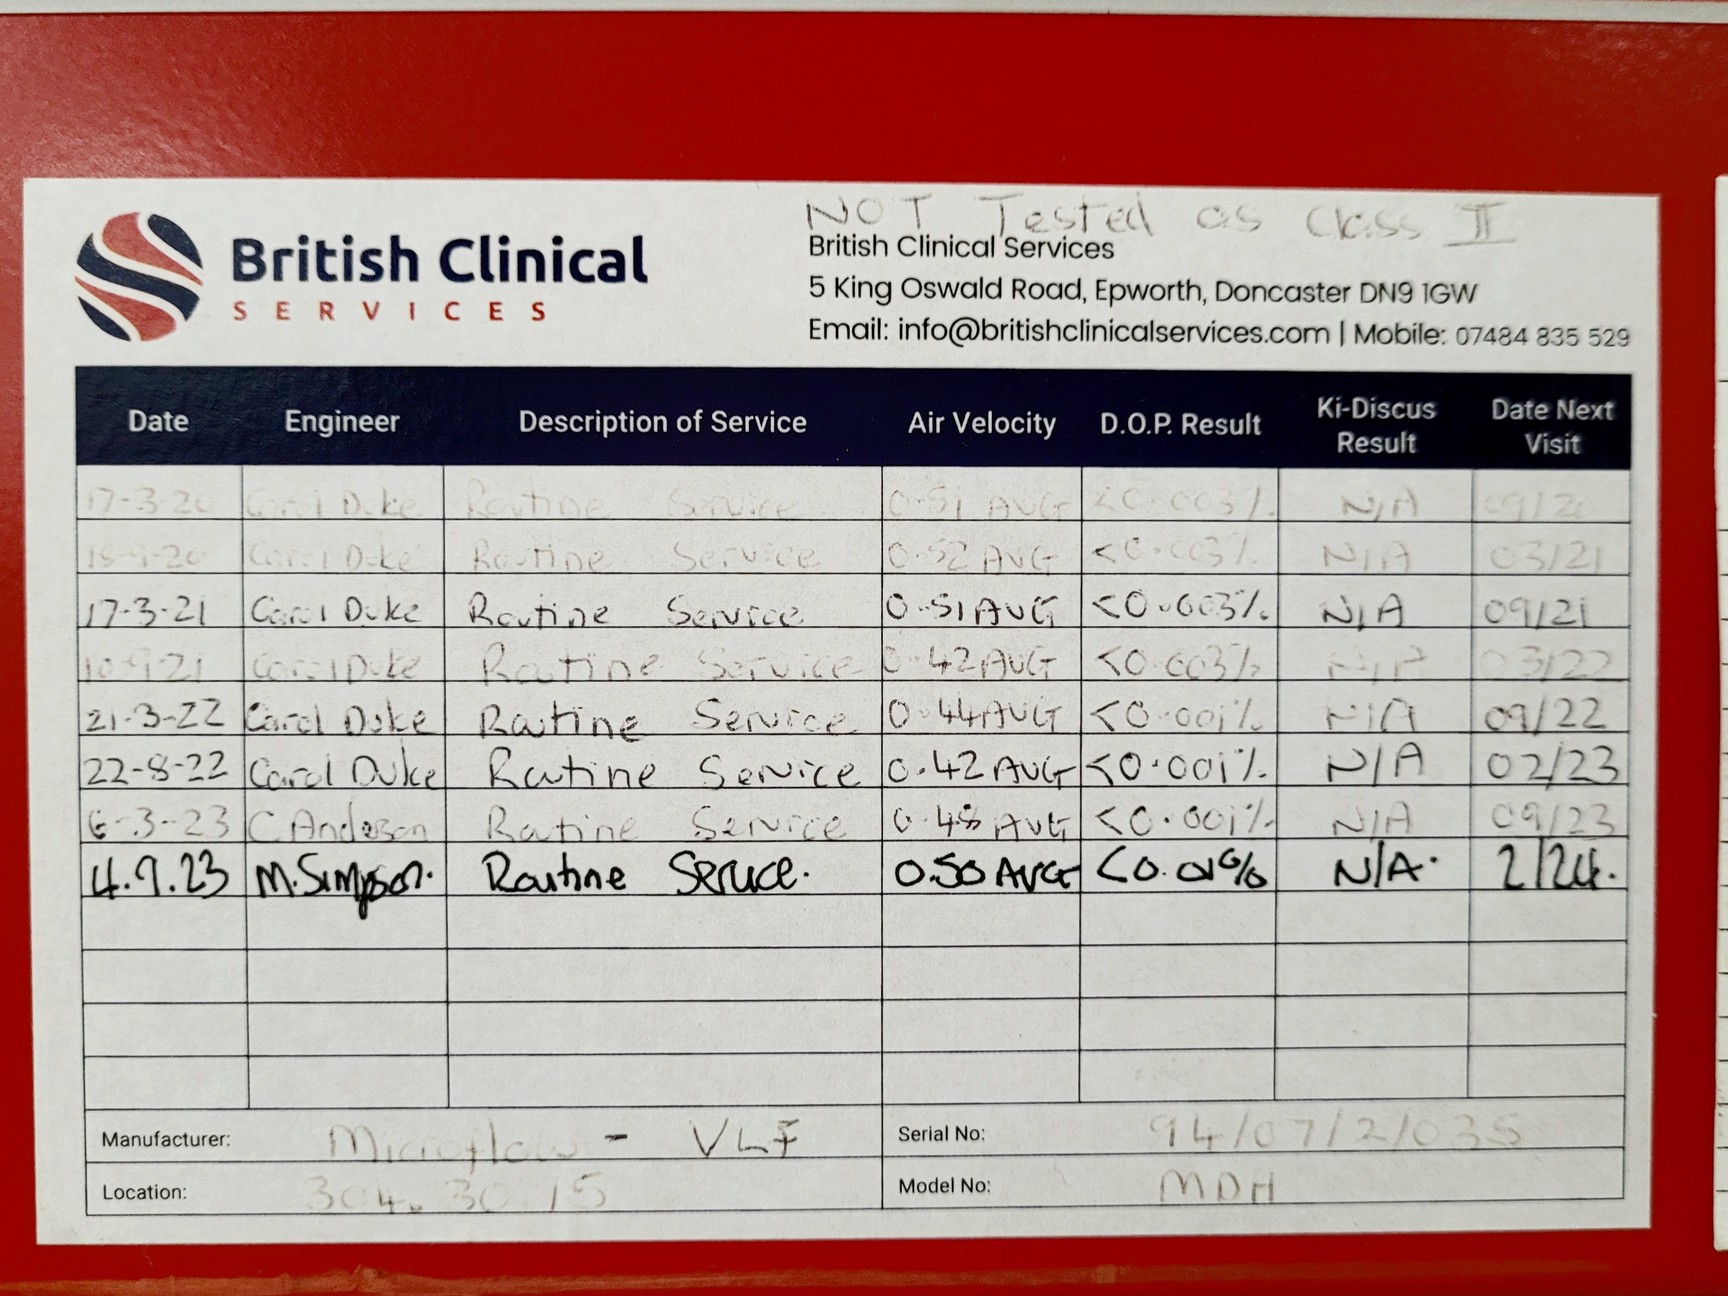 NOT Tested as Class II
British Clinical
SERVICES
British Clinical Services
5 King Oswald Road, Epworth, Doncaster DN9 1GW
Email: info@britishclinicalservices.com | Mobile: 07484 835 529
Date Engineer Description of Service Air Velocity D.O.P. Result Ki-Discus Result Date Next Visit
17-3-20 Carol Duke Routine Service 0.51 AVG <0.003% N/A 09/20
15-9-20 Carol Duke Routine Service 0.52 AVG <0.003% N/A 03/21
17-3-21 Carol Duke Routine Service 0.51 AVG <0.003% N/A 09/21
10-9-21 Carol Duke Routine Service 0.42 AVG <0.003% N/A 03/22
21-3-22 Carol Duke Routine Service 0.44 AVG <0.001% N/A 09/22
22-8-22 Carol Duke Routine Service 0.42 AVG <0.001% N/A 02/23
6-3-23 C. Anderson Routine Service 0.48 AVG <0.001% N/A 09/23
4.9.23 M. Simpson. Routine Service. 0.50 AVG N/A. 2/24.
Manufacturer: Microflow - VLF Serial No: 94/07/2/035
Location: 304.30.15 Model No: MDH